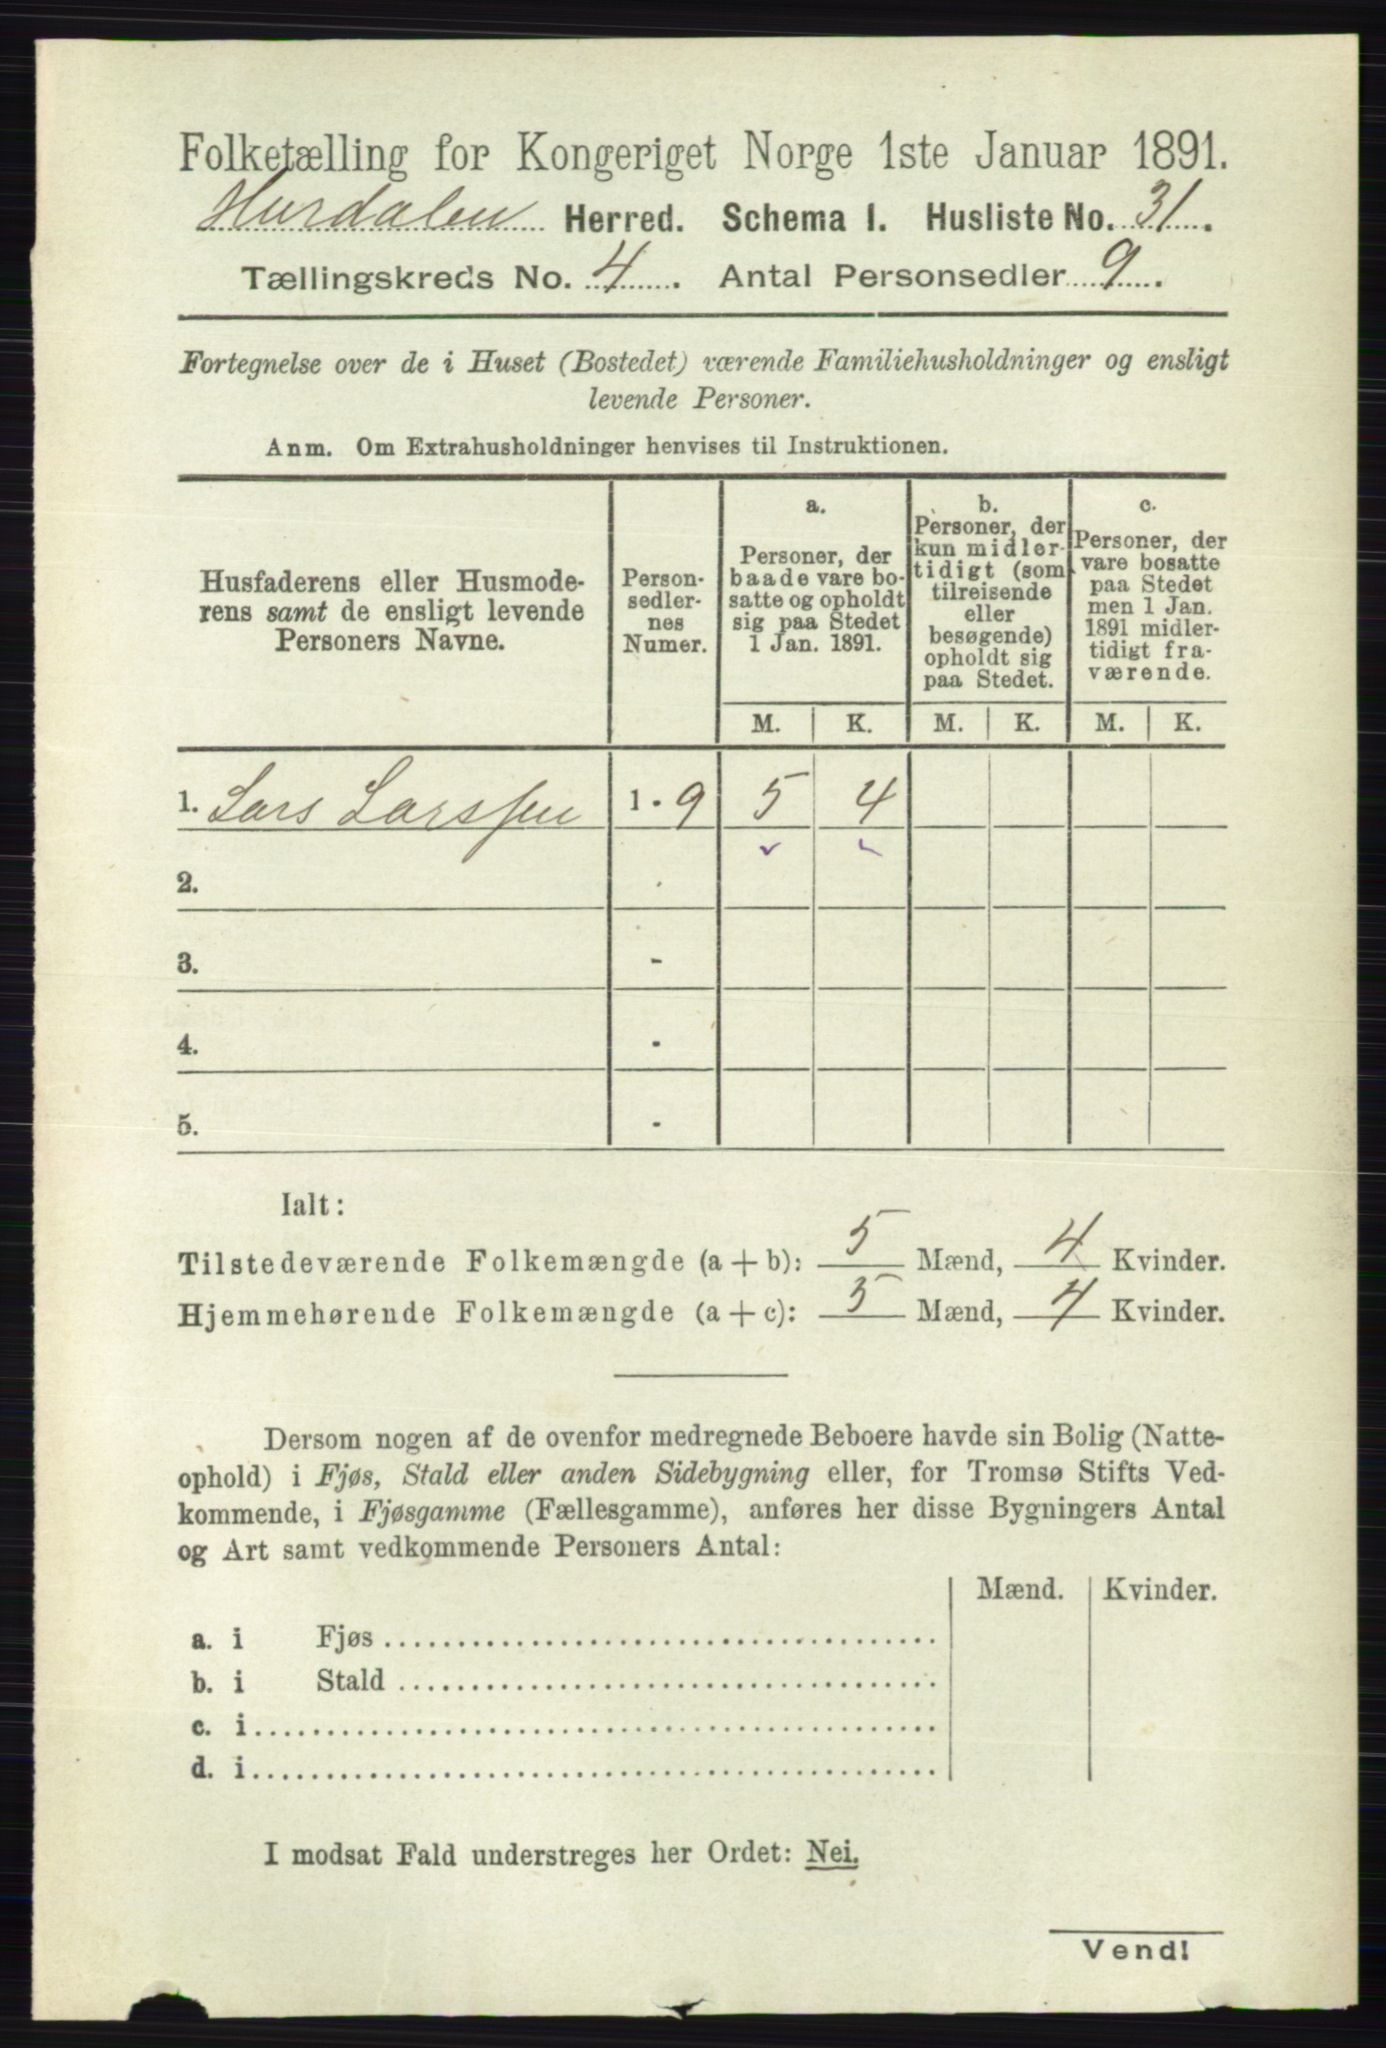 Folketælling for Kongeriget Norge 1ste Januar 1891.
Hurdalen Herred. Schema I. Husliste No. 31.
Tællingskreds No. 4. Antal Personsedler 9.
Fortegnelse over de i Huset (Bostedet) værende Familiehusholdninger og ensligt
levende Personer.
Anm. Om Extrahusholdninger henvises til Instruktionen.
Husfaderens eller Husmode-
rens samt de ensligt levende
Personers Navne.
Person-
sedler-
nes
Numer.
a.
Personer, der
baade vare bo-
satte og opholdt
sig paa Stedet
1 Jan. 1891.
b.
Personer, der
kun midler-
tidigt (som
tilreisende
eller
besøgende)
opholdt sig
paa Stedet.
c.
Personer, der
vare bosatte
paa Stedet
men 1 Jan.
1891 midler-
tidigt fra-
værende.
M. K. M. K. M. K.
1. Lars Larssen 1 - 9 5 4
2.
3. -
4. -
5. -
Ialt:
Tilstedeværende Folkemængde (a + b): 5 Mænd, 4 Kvinder.
Hjemmehørende Folkemængde (a + c): 5 Mænd, 4 Kvinder.
Dersom nogen af de ovenfor medregnede Beboere havde sin Bolig (Natte-
ophold) i Fjøs, Stald eller anden Sidebygning eller, for Tromsø Stifts Ved-
kommende, i Fjøsgamme (Fællesgamme), anføres her disse Bygningers Antal
og Art samt vedkommende Personers Antal:
Mænd. Kvinder.
a. i Fjøs
b. i Stald
c. i
d. i
I modsat Fald understreges her Ordet: Nei.
Vend!